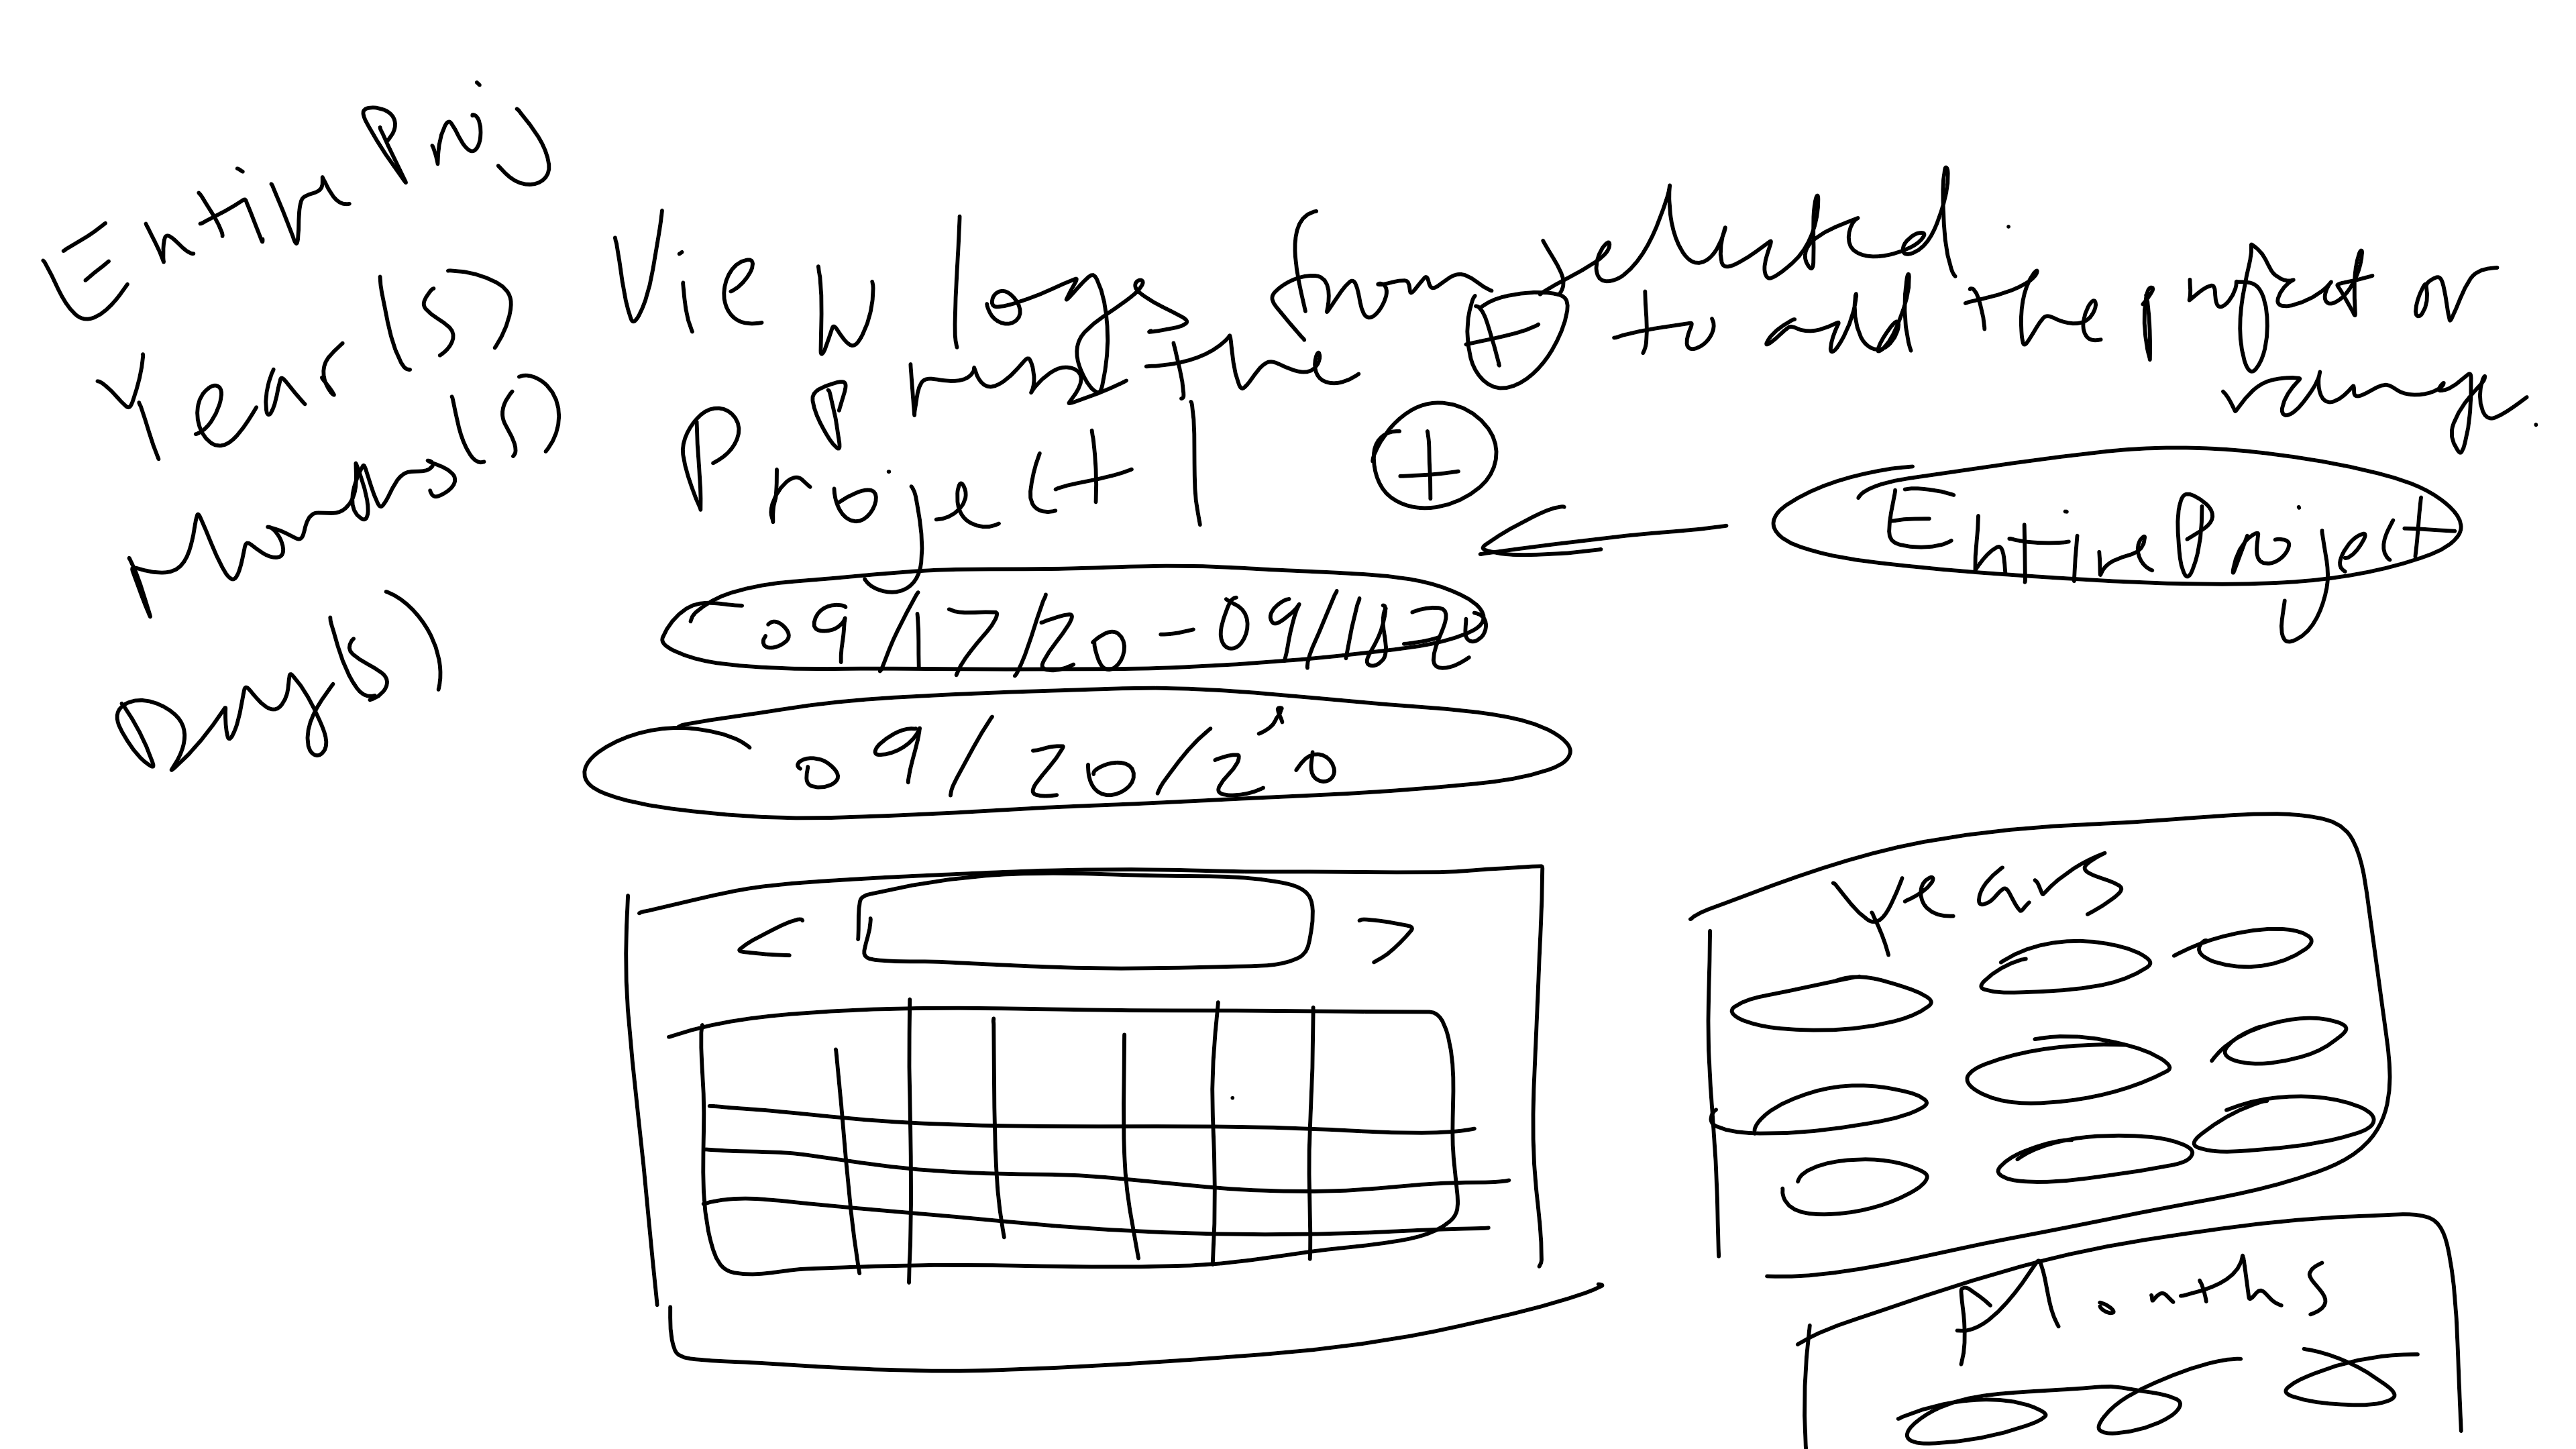 Entire Proj
Year(s)
Months(s)
Day(s)
View logs from selected.
Press the + to add the project or range.
Project 1 +
Entire Project
09/17/20-09/18/20
09/20/20
< >
years
Months